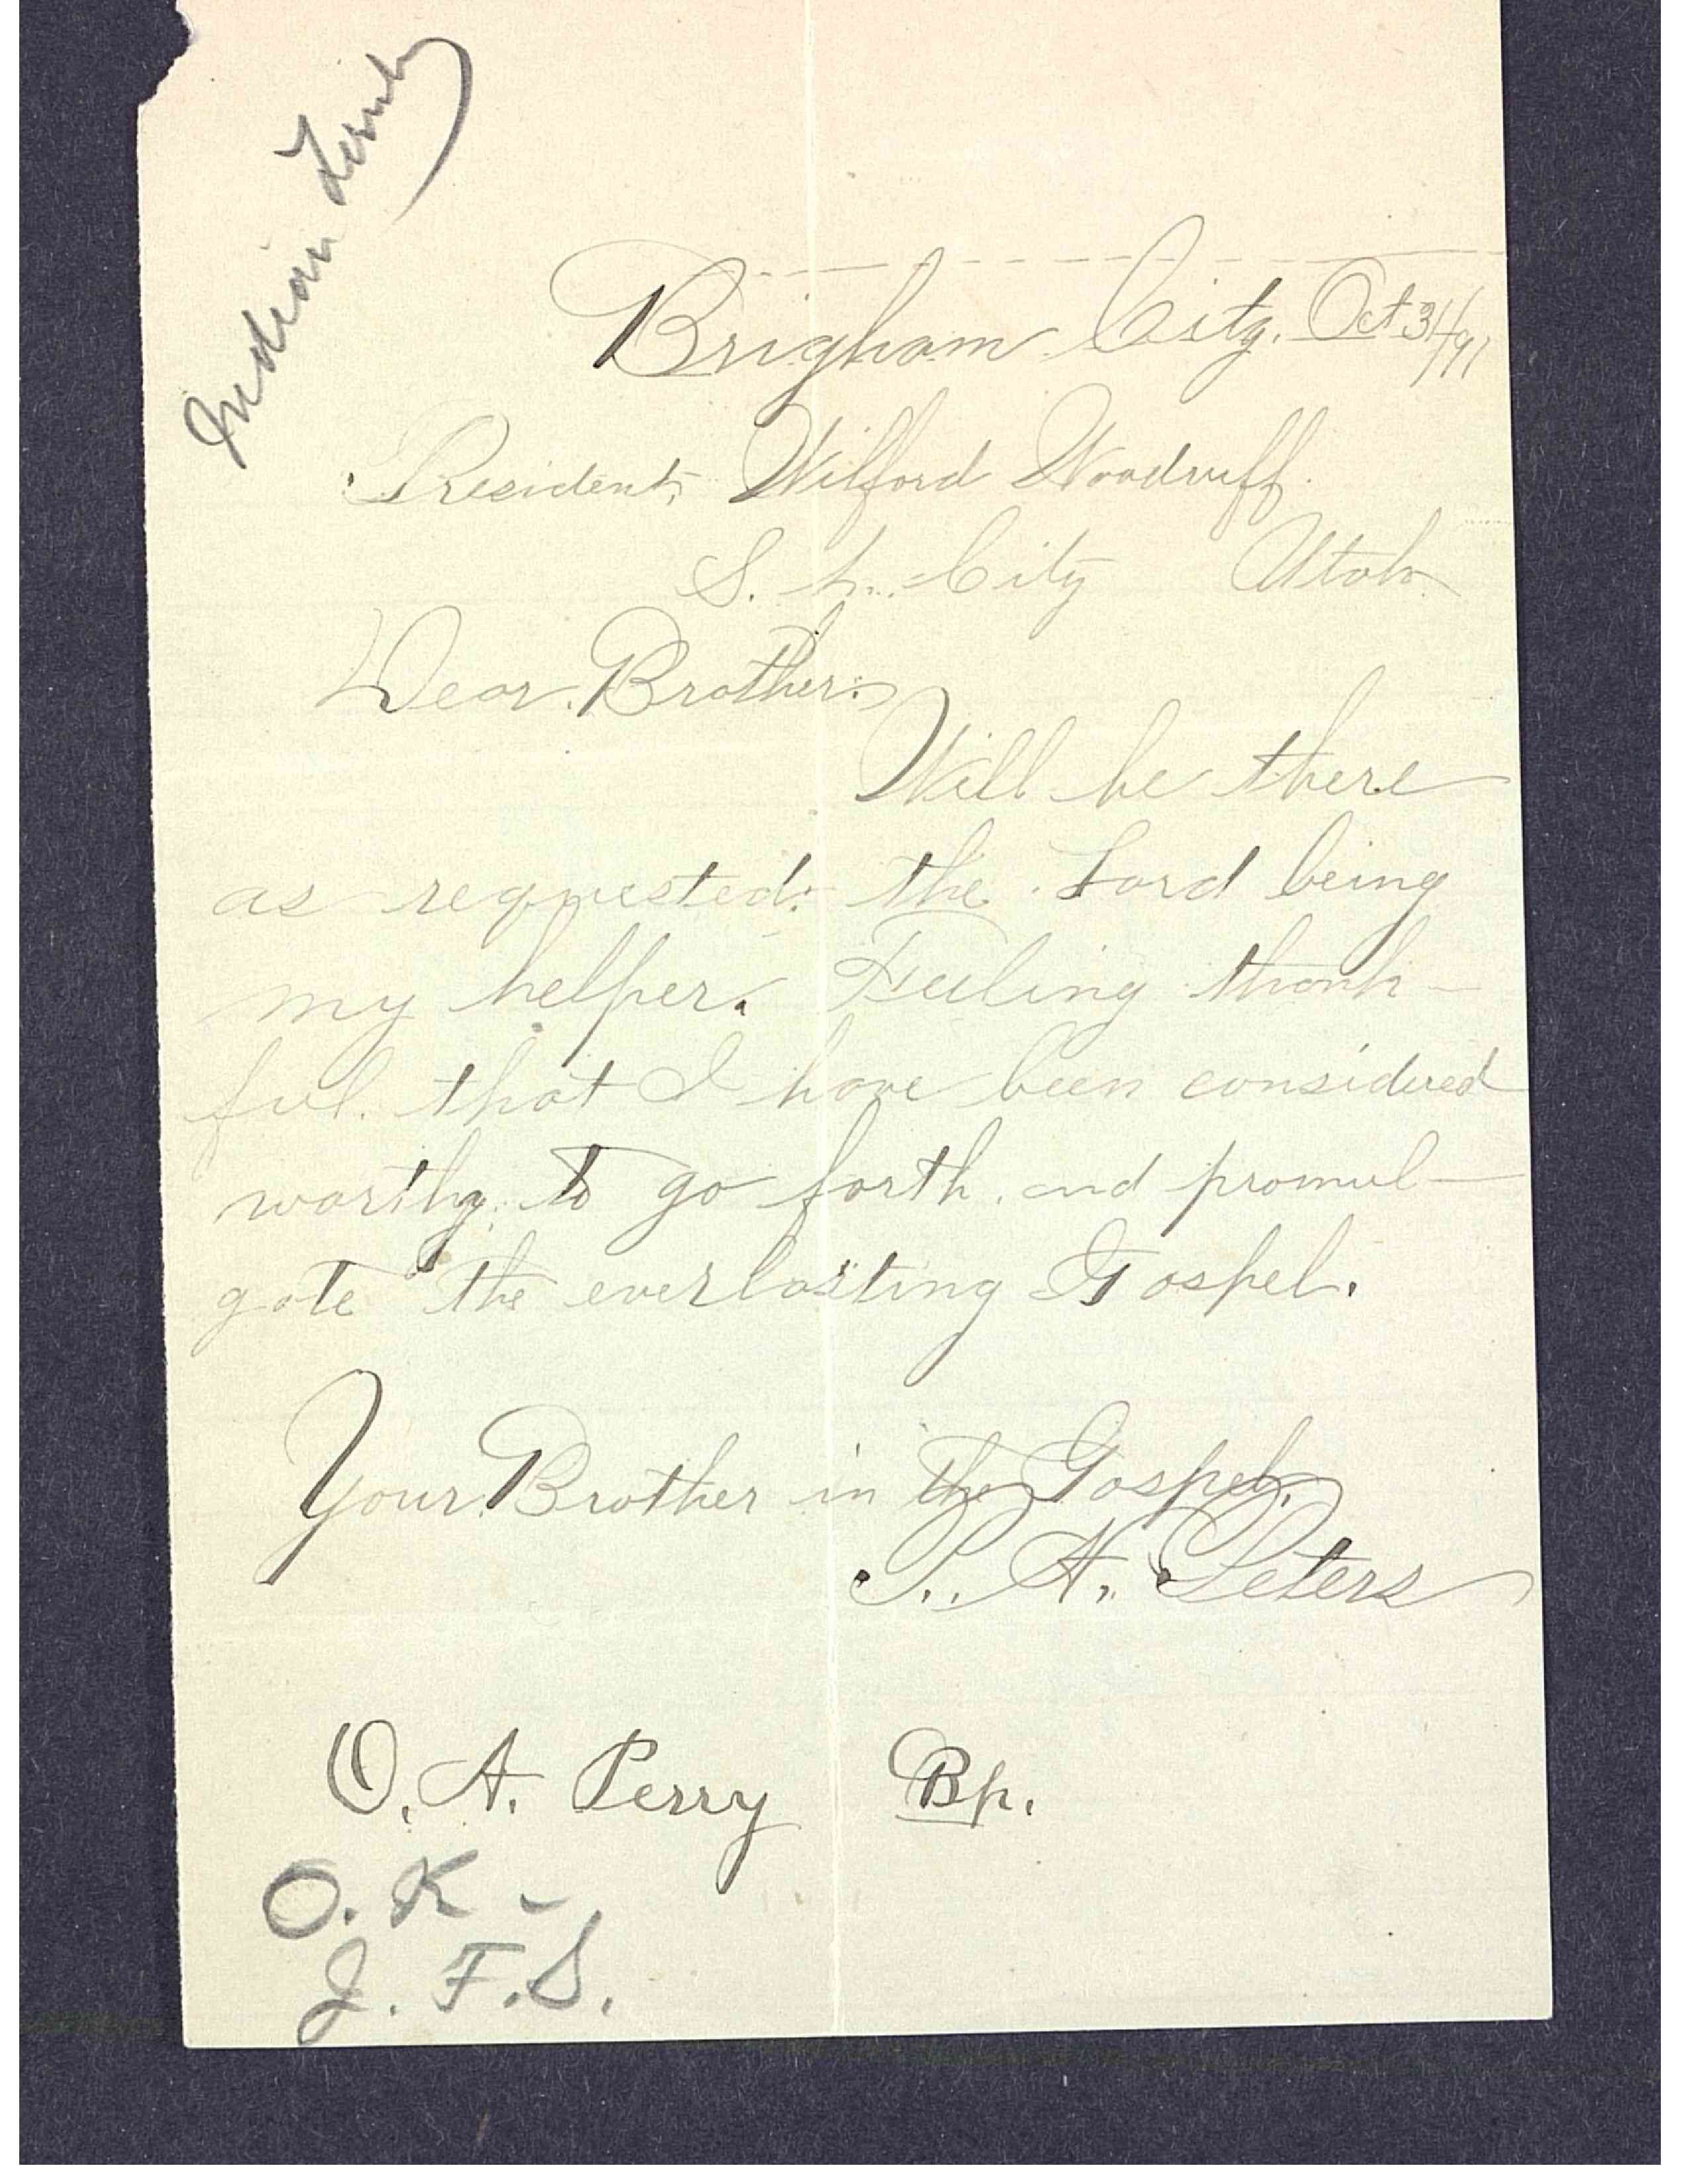 Indian Ter
Brigham City. Oct 31/91
President, Wilford Woodruff.
S. L. City Utah
Dear Brother:
Will be there
as requested: the Lord being
my helper. Feeling thank-
ful. that I have been considered
worthy. to go forth. and promul-
gate the everlasting Gospel.
Your Brother in the Gospel.
P. A. Peters
O. A. Perry Bp.
O. K -
J. F. S.